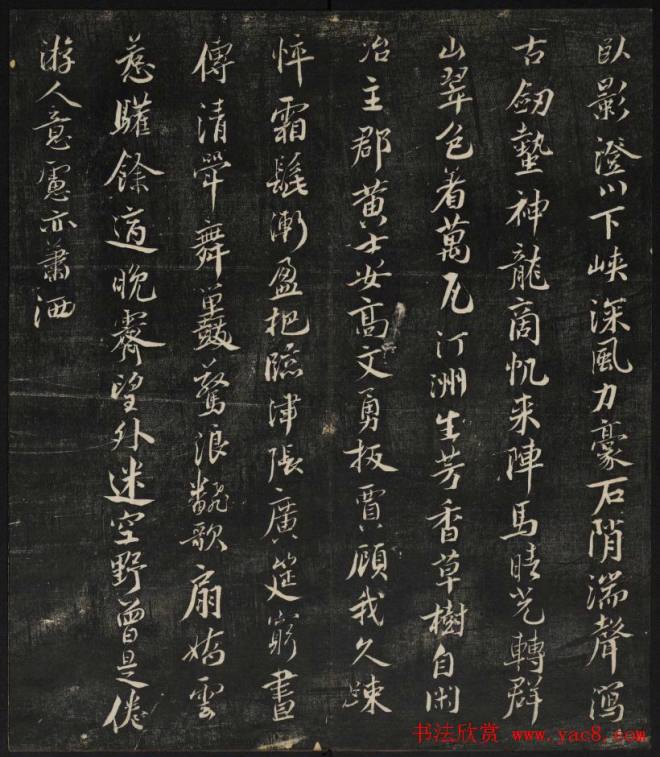 臥影澄川下峽深風力豪石隋湍聲瀉
古劒蟄神龍商帆来陣馬晴光轉群
山翠色着萬瓦汀洲生芳香草樹自閑
冶主郡黄士安高文勇扳賈顧我久踈
悴霜髭漸盈把臨津張廣筵窮晝
傳清斝舞鼉鼓驚浪飜歌扇嬌雲
惹驩餘適晚霽望外迷空野曽是倦
游人意慮亦蕭洒
书法欣赏 www.yac8.com